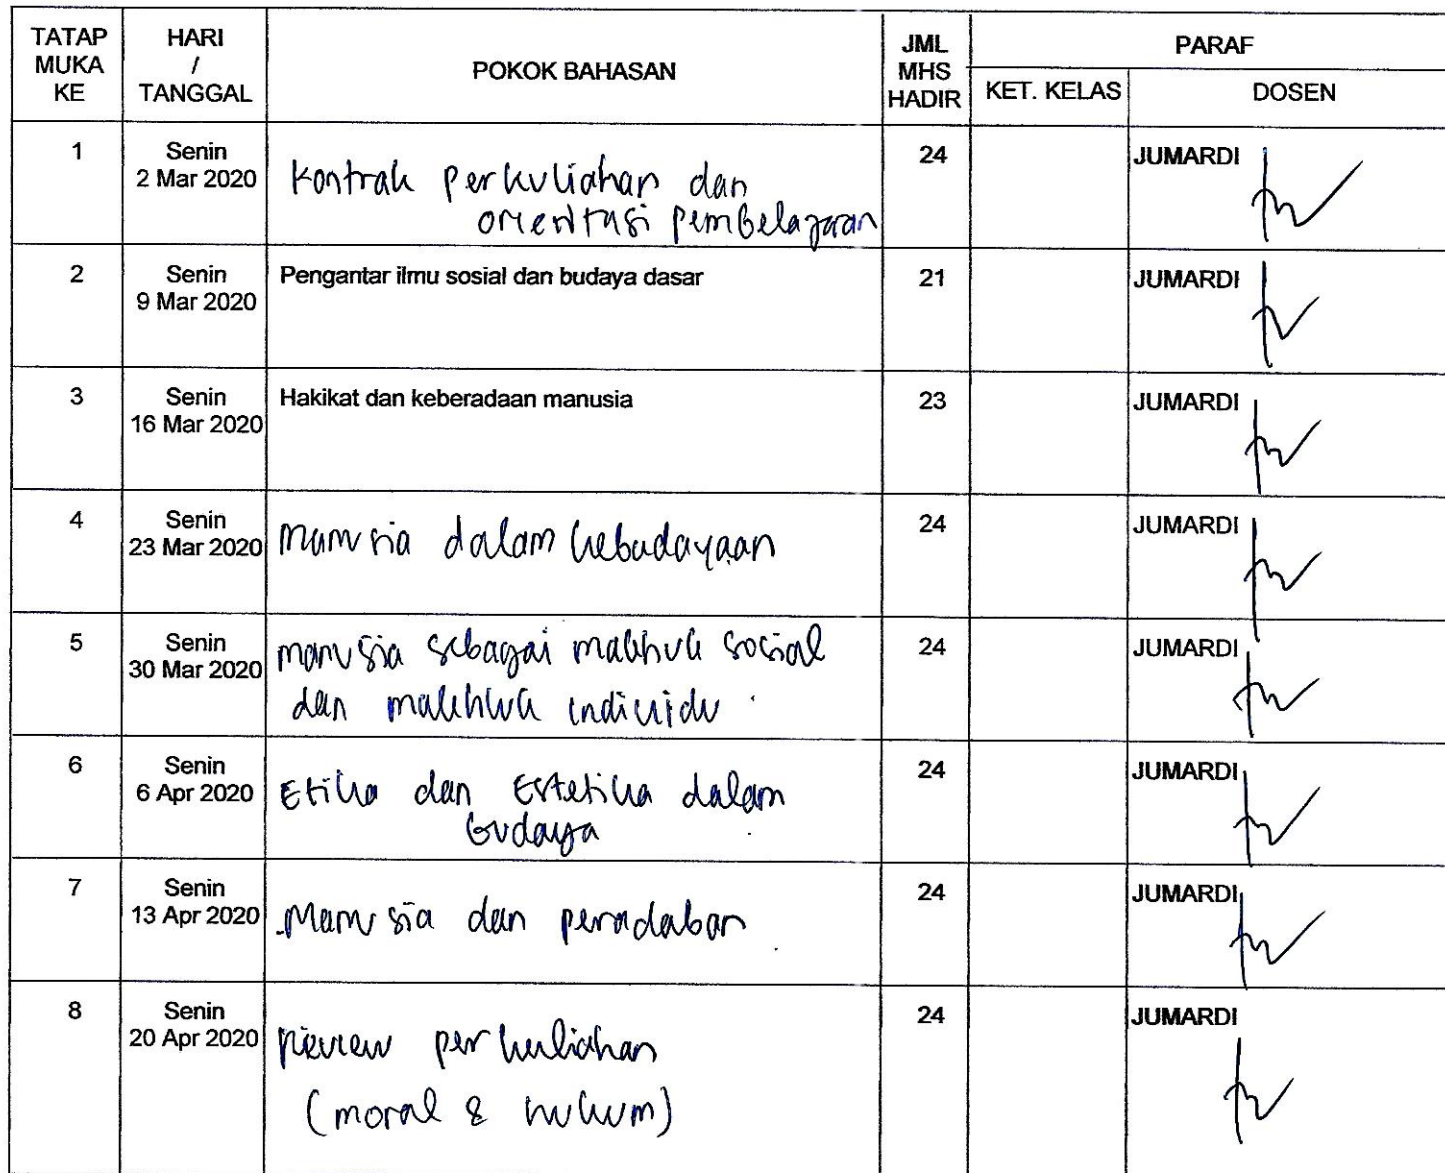 TATAP MUKA KE
HARI / TANGGAL
POKOK BAHASAN
JML MHS HADIR
PARAF
KET. KELAS
DOSEN
1
Senin
2 Mar 2020
Kontrak perkuliahan dan
orientasi pembelajaran
24
JUMARDI
2
Senin
9 Mar 2020
Pengantar ilmu sosial dan budaya dasar
21
JUMARDI
3
Senin
16 Mar 2020
Hakikat dan keberadaan manusia
23
JUMARDI
4
Senin
23 Mar 2020
Manusia dalam kebudayaan
24
JUMARDI
5
Senin
30 Mar 2020
manusia sebagai makhuk sosial
dan makhluk individu
24
JUMARDI
6
Senin
6 Apr 2020
Etika dan Estetika dalam
budaya
24
JUMARDI
7
Senin
13 Apr 2020
Manusia dan peradaban
24
JUMARDI
8
Senin
20 Apr 2020
Review perkuliahan
(moral & hukum)
24
JUMARDI